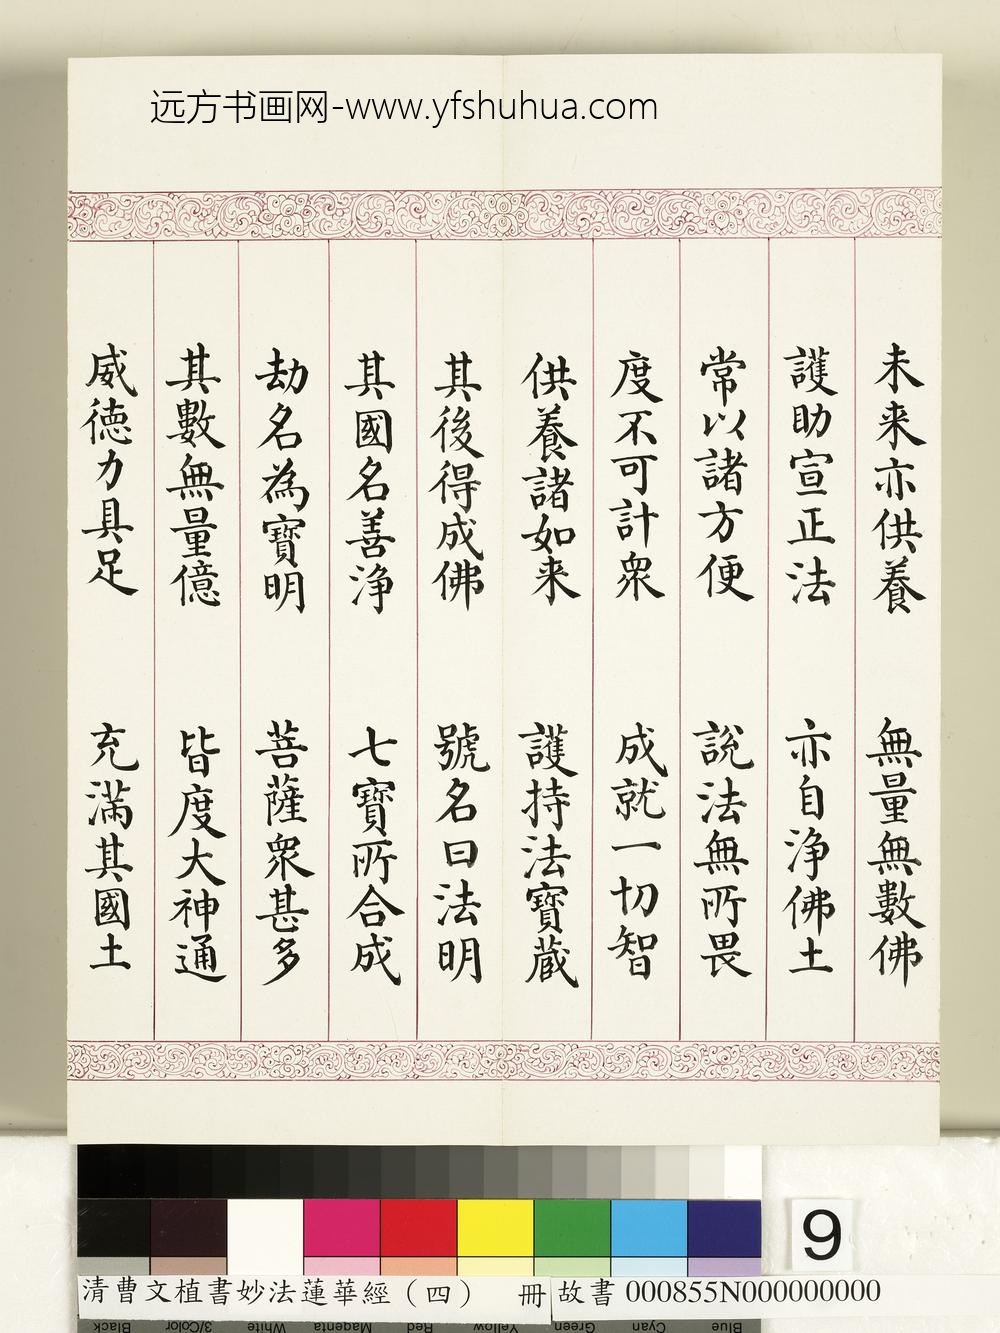 远方书画网-www.yfshuhua.com
未来亦供養 無量無數佛
護助宣正法 亦自浄佛土
常以諸方便 説法無所畏
度不可計衆 成就一切智
供養諸如来 護持法寶蔵
其後得成佛 號名曰法明
其國名善浄 七寶所合成
劫名為寶明 菩薩衆甚多
其數無量億 皆度大神通
威徳力具足 充滿其國土
9
清曹文植書妙法蓮華經（四） 冊
故書 000855N000000000
Black
3/Color
White
Magenta
Red
Yellow
Green
Cyan
Blue